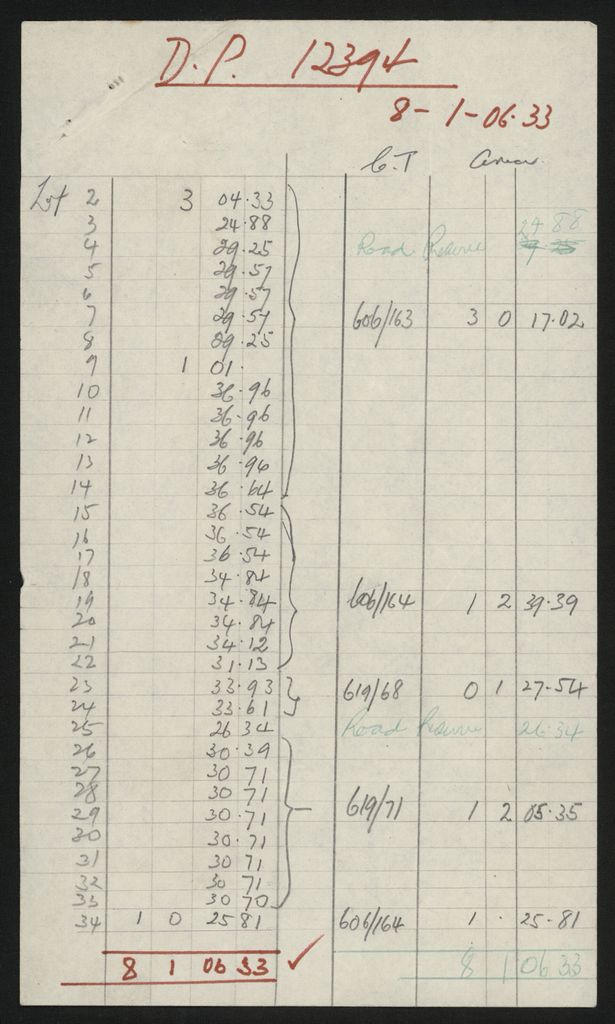 D.P. 12394
8-1-06.33
C.T Area
Lot 2 3 04.33
3 24.88 Road Reserve 24 88
4 29.25
5 29.57
6 29.57
7 29.57 606/163 3 0 17.02
8 29.25
9 1 01.
10 36.96
11 36.96
12 36.96
13 36.96
14 36.64
15 36.54
16 36.54
17 36.54
18 34.84
19 34.84 606/164 1 2 39.39
20 34.84
21 34.12
22 31.13
23 33.93 619/68 0 1 27.54
24 33.61
25 26 34 Road Reserve 26.34
26 30.39
27 30 71
28 30 71
29 30.71 619/71 1 2 05.35
30 30.71
31 30 71
32 30 71
33 30 70
34 1 0 25 81 606/164 1 . 25-81
8 1 06 33 ✓ 8 1 06 33